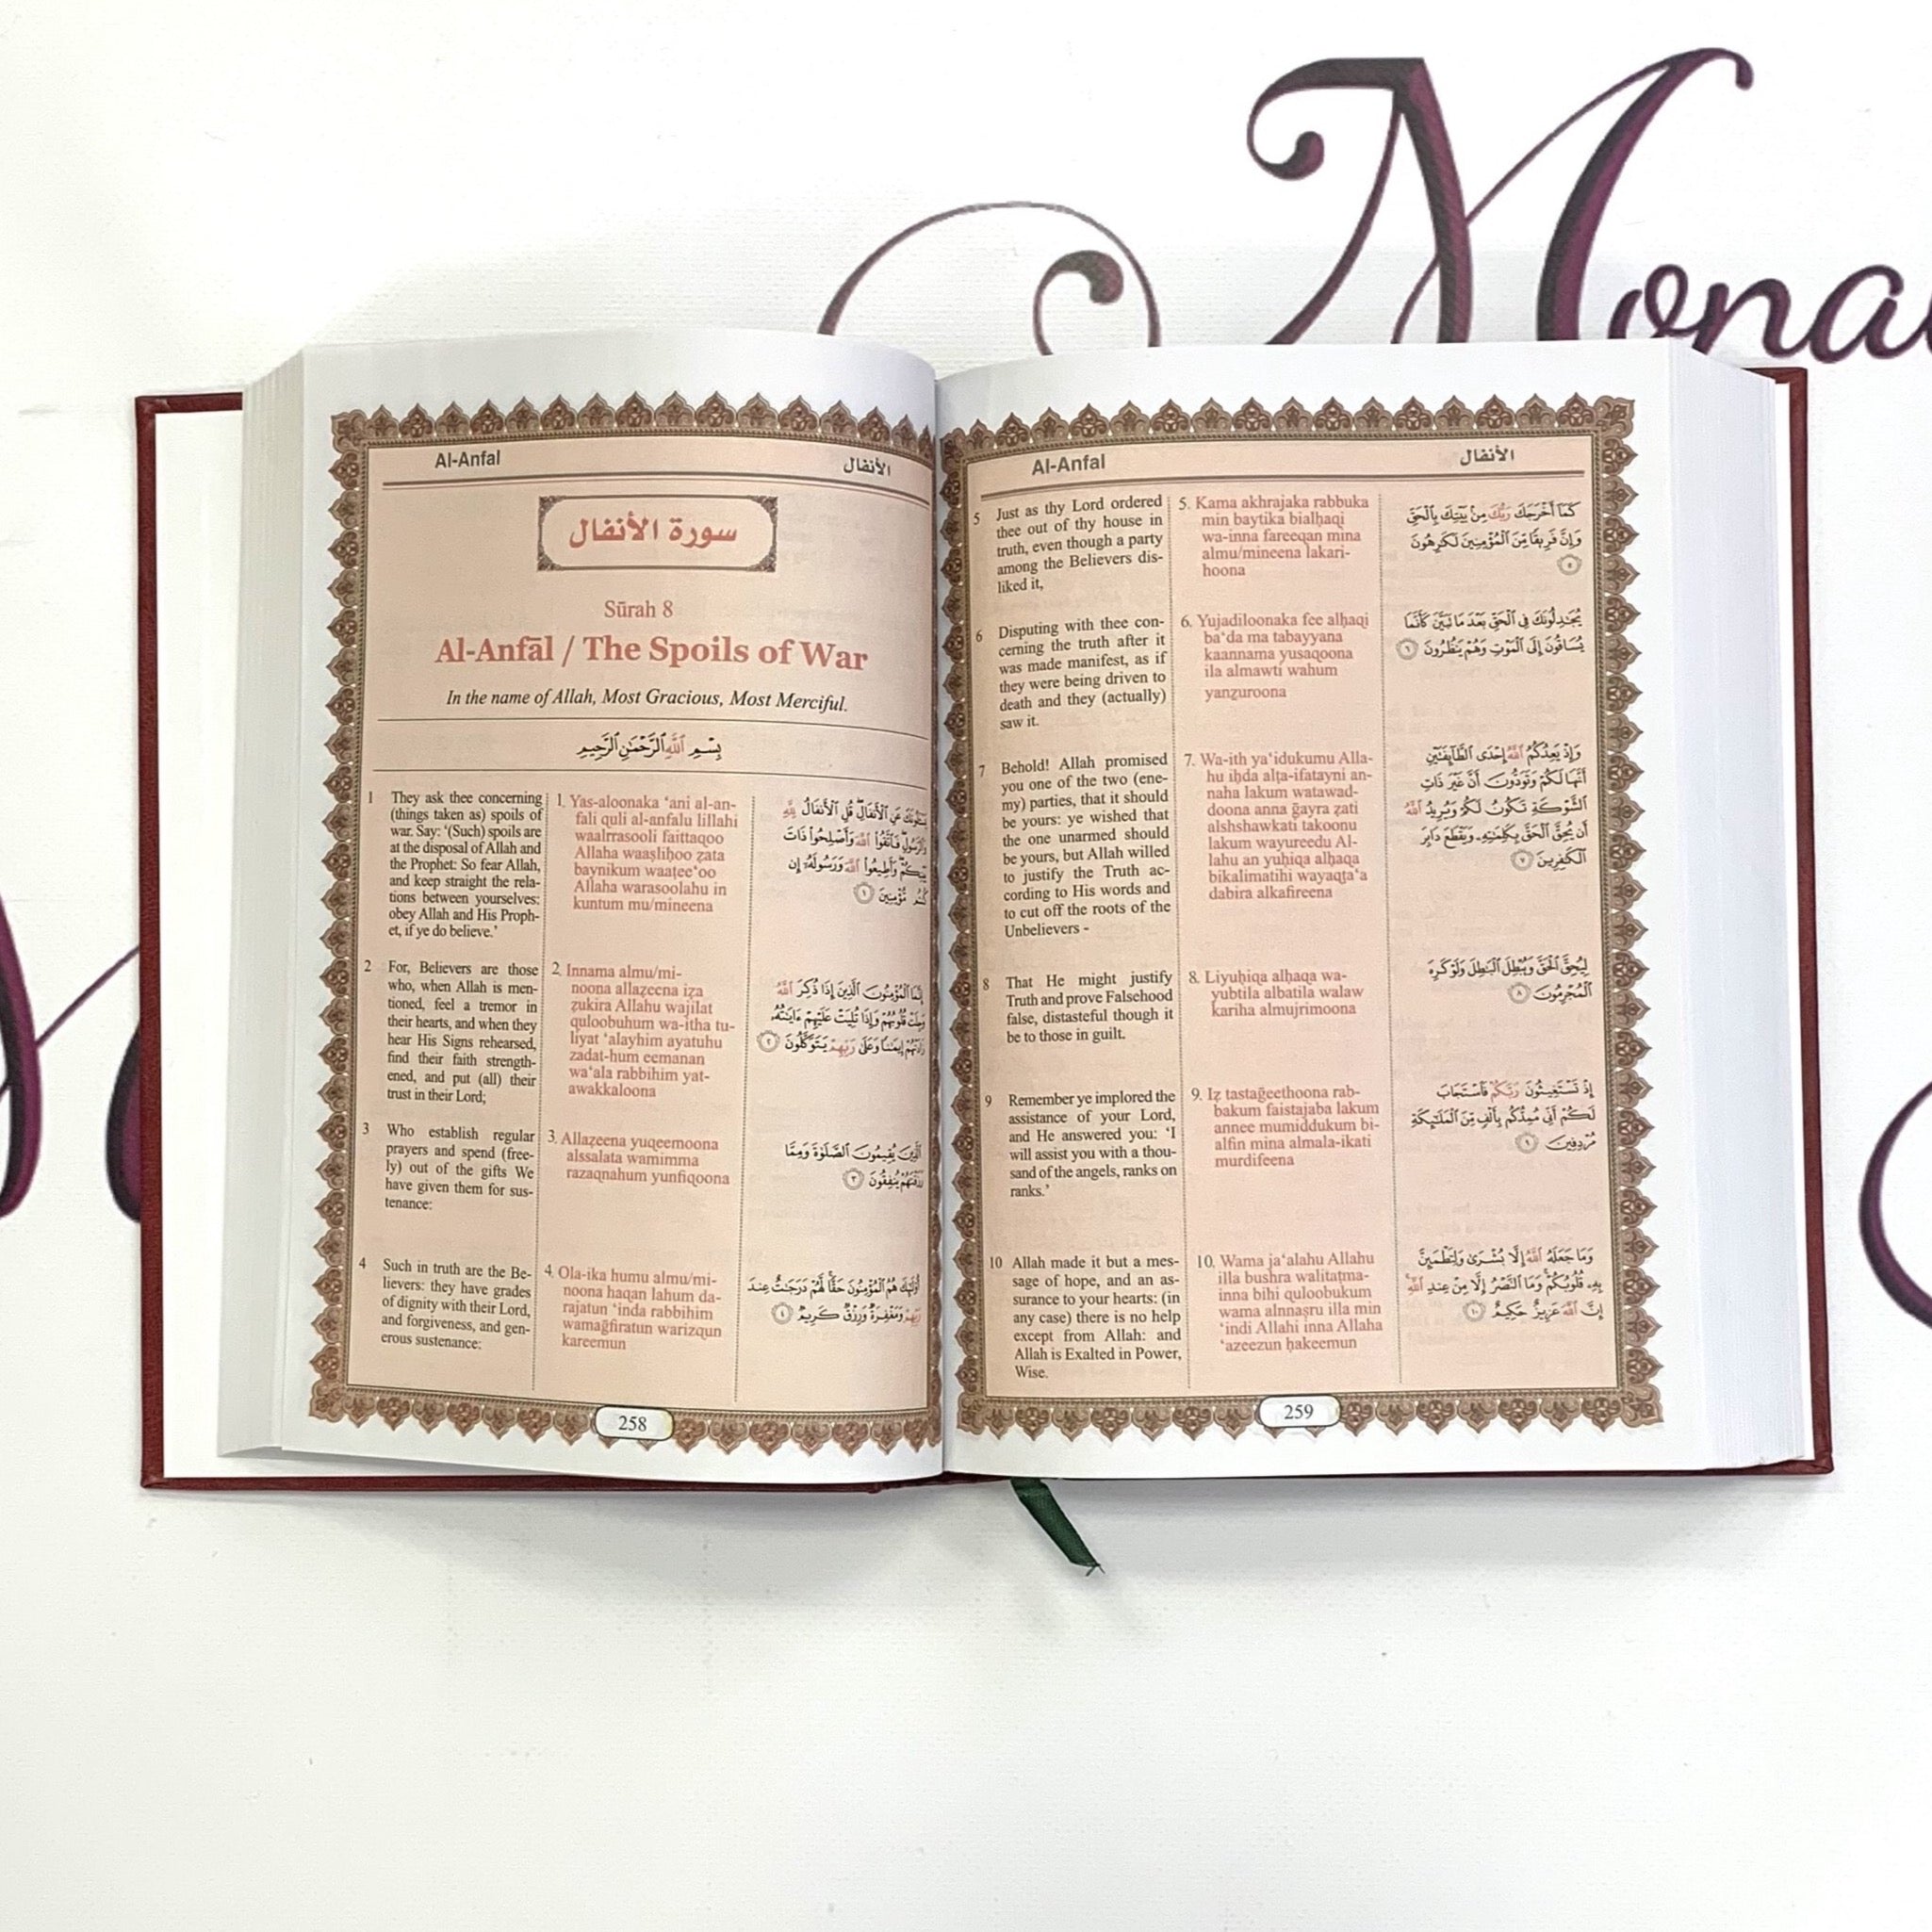 Monal
Al-Anfal
الأنفال
سورة الأنفال
Sūrah 8
Al-Anfāl / The Spoils of War
In the name of Allah, Most Gracious, Most Merciful.
بِسْمِ اللَّهِ الرَّحْمَٰنِ الرَّحِيمِ
1 They ask thee concerning
(things taken as) spoils of
war. Say: ‘(Such) spoils are
at the disposal of Allah and
the Prophet: So fear Allah,
and keep straight the rela-
tions between yourselves:
obey Allah and His Proph-
et, if ye do believe.’
1. Yas-aloonaka ‘ani al-an-
fali quli al-anfalu lillahi
waalrrasooli faittaqoo
Allaha waaṣliḥoo ẓata
baynikum waaṭee‘oo
Allaha warasoolahu in
kuntum mu/mineena
يَسْـَٔلُونَكَ عَنِ ٱلْأَنفَالِ ۖ قُلِ ٱلْأَنفَالُ لِلَّهِ
وَٱلرَّسُولِ ۖ فَٱتَّقُوا۟ ٱللَّهَ وَأَصْلِحُوا۟ ذَاتَ
بَيْنِكُمْ ۖ وَأَطِيعُوا۟ ٱللَّهَ وَرَسُولَهُۥٓ إِن
كُنتُم مُّؤْمِنِينَ ١
2 For, Believers are those
who, when Allah is men-
tioned, feel a tremor in
their hearts, and when they
hear His Signs rehearsed,
find their faith strength-
ened, and put (all) their
trust in their Lord;
2. Innama almu/mi-
noona allaẓeena iẓa
ẓukira Allahu wajilat
quloobuhum wa-itha tu-
liyat ‘alayhim ayatuhu
zadat-hum eemanan
wa‘ala rabbihim yat-
awakkaloona
إِنَّمَا ٱلْمُؤْمِنُونَ ٱلَّذِينَ إِذَا ذُكِرَ ٱللَّهُ
وَجِلَتْ قُلُوبُهُمْ وَإِذَا تُلِيَتْ عَلَيْهِمْ ءَايَـٰتُهُۥ
زَادَتْهُمْ إِيمَـٰنًا وَعَلَىٰ رَبِّهِمْ يَتَوَكَّلُونَ ٢
3 Who establish regular
prayers and spend (free-
ly) out of the gifts We
have given them for sus-
tenance:
3. Allaẓeena yuqeemoona
alssalata wamimma
razaqnahum yunfiqoona
ٱلَّذِينَ يُقِيمُونَ ٱلصَّلَوٰةَ وَمِمَّا
رَزَقْنَـٰهُمْ يُنفِقُونَ ٣
4 Such in truth are the Be-
lievers: they have grades
of dignity with their Lord,
and forgiveness, and gen-
erous sustenance:
4. Ola-ika humu almu/mi-
noona haqan lahum da-
rajatun ‘inda rabbihim
wamaḡfiratun warizqun
kareemun
أُو۟لَـٰٓئِكَ هُمُ ٱلْمُؤْمِنُونَ حَقًّا ۚ لَّهُمْ دَرَجَـٰتٌ عِندَ
رَبِّهِمْ وَمَغْفِرَةٌ وَرِزْقٌ كَرِيمٌ ٤
258
Al-Anfal
الأنفال
5 Just as thy Lord ordered
thee out of thy house in
truth, even though a party
among the Believers dis-
liked it,
5. Kama akhrajaka rabbuka
min baytika bialḥaqi
wa-inna fareeqan mina
almu/mineena lakari-
hoona
كَمَآ أَخْرَجَكَ رَبُّكَ مِنۢ بَيْتِكَ بِٱلْحَقِّ
وَإِنَّ فَرِيقًا مِّنَ ٱلْمُؤْمِنِينَ لَكَـٰرِهُونَ
٥
6 Disputing with thee con-
cerning the truth after it
was made manifest, as if
they were being driven to
death and they (actually)
saw it.
6. Yujadiloonaka fee alḥaqi
ba‘da ma tabayyana
kaannama yusaqoona
ila almawti wahum
yanẓuroona
يُجَـٰدِلُونَكَ فِى ٱلْحَقِّ بَعْدَ مَا تَبَيَّنَ كَأَنَّمَا
يُسَاقُونَ إِلَى ٱلْمَوْتِ وَهُمْ يَنظُرُونَ ٦
7 Behold! Allah promised
you one of the two (ene-
my) parties, that it should
be yours: ye wished that
the one unarmed should
be yours, but Allah willed
to justify the Truth ac-
cording to His words and
to cut off the roots of the
Unbelievers -
7. Wa-ith ya‘idukumu Alla-
hu iḥda alṭa-ifatayni an-
naha lakum watawad-
doona anna ḡayra ẓati
alshshawkati takoonu
lakum wayureedu Al-
lahu an yuḥiqa alḥaqa
bikalimatihi wayaqṭa‘a
dabira alkafireena
وَإِذْ يَعِدُكُمُ ٱللَّهُ إِحْدَى ٱلطَّآئِفَتَيْنِ
أَنَّهَا لَكُمْ وَتَوَدُّونَ أَنَّ غَيْرَ ذَاتِ
ٱلشَّوْكَةِ تَكُونُ لَكُمْ وَيُرِيدُ ٱللَّهُ
أَن يُحِقَّ ٱلْحَقَّ بِكَلِمَـٰتِهِۦ وَيَقْطَعَ دَابِرَ
ٱلْكَـٰفِرِينَ ٧
8 That He might justify
Truth and prove Falsehood
false, distasteful though it
be to those in guilt.
8. Liyuḥiqa alḥaqa wa-
yubtila albatila walaw
kariha almujrimoona
لِيُحِقَّ ٱلْحَقَّ وَيُبْطِلَ ٱلْبَـٰطِلَ وَلَوْ كَرِهَ
ٱلْمُجْرِمُونَ ٨
9 Remember ye implored the
assistance of your Lord,
and He answered you: ‘I
will assist you with a thou-
sand of the angels, ranks on
ranks.’
9. Iẓ tastaḡeethoona rab-
bakum faistajaba lakum
annee mumiddukum bi-
alfin mina almala-ikati
murdifeena
إِذْ تَسْتَغِيثُونَ رَبَّكُمْ فَٱسْتَجَابَ
لَكُمْ أَنِّى مُمِدُّكُم بِأَلْفٍ مِّنَ ٱلْمَلَـٰٓئِكَةِ
مُرْدِفِينَ ٩
10 Allah made it but a mes-
sage of hope, and an as-
surance to your hearts: (in
any case) there is no help
except from Allah: and
Allah is Exalted in Power,
Wise.
10. Wama ja‘alahu Allahu
illa bushra walitaṭma-
inna bihi quloobukum
wama alnnaṣru illa min
‘indi Allahi inna Allaha
‘azeezun ḥakeemun
وَمَا جَعَلَهُ ٱللَّهُ إِلَّا بُشْرَىٰ وَلِتَطْمَئِنَّ
بِهِۦ قُلُوبُكُمْ ۚ وَمَا ٱلنَّصْرُ إِلَّا مِنْ عِندِ ٱللَّهِ ۚ
إِنَّ ٱللَّهَ عَزِيزٌ حَكِيمٌ ١٠
259